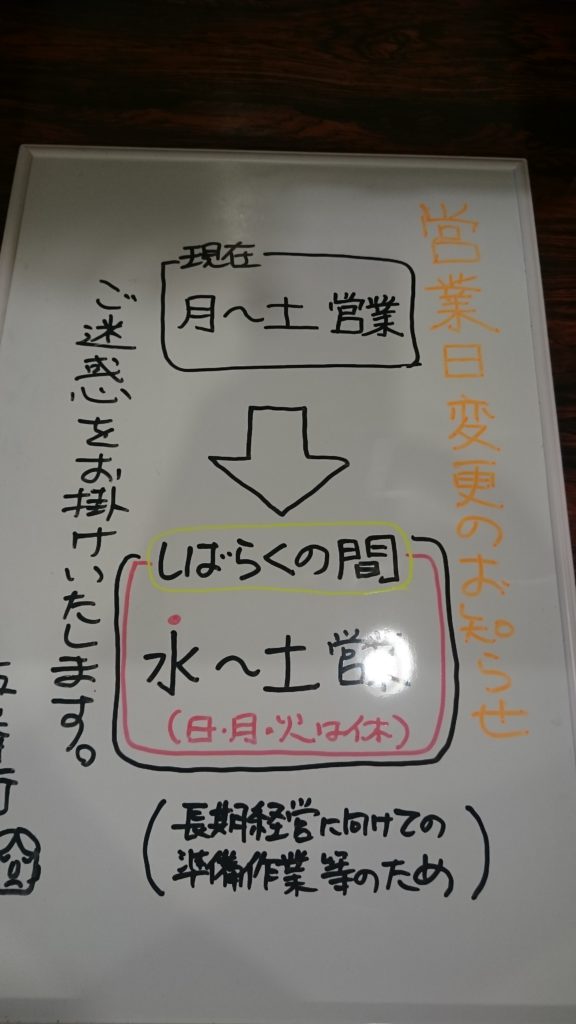 営業日変更のお知らせ
現在
月〜土 営業
しばらくの間
水〜土 営業
(日・月・火は休)
(長期経営に向けての
準備作業等のため)
ご迷惑をお掛けいたします。